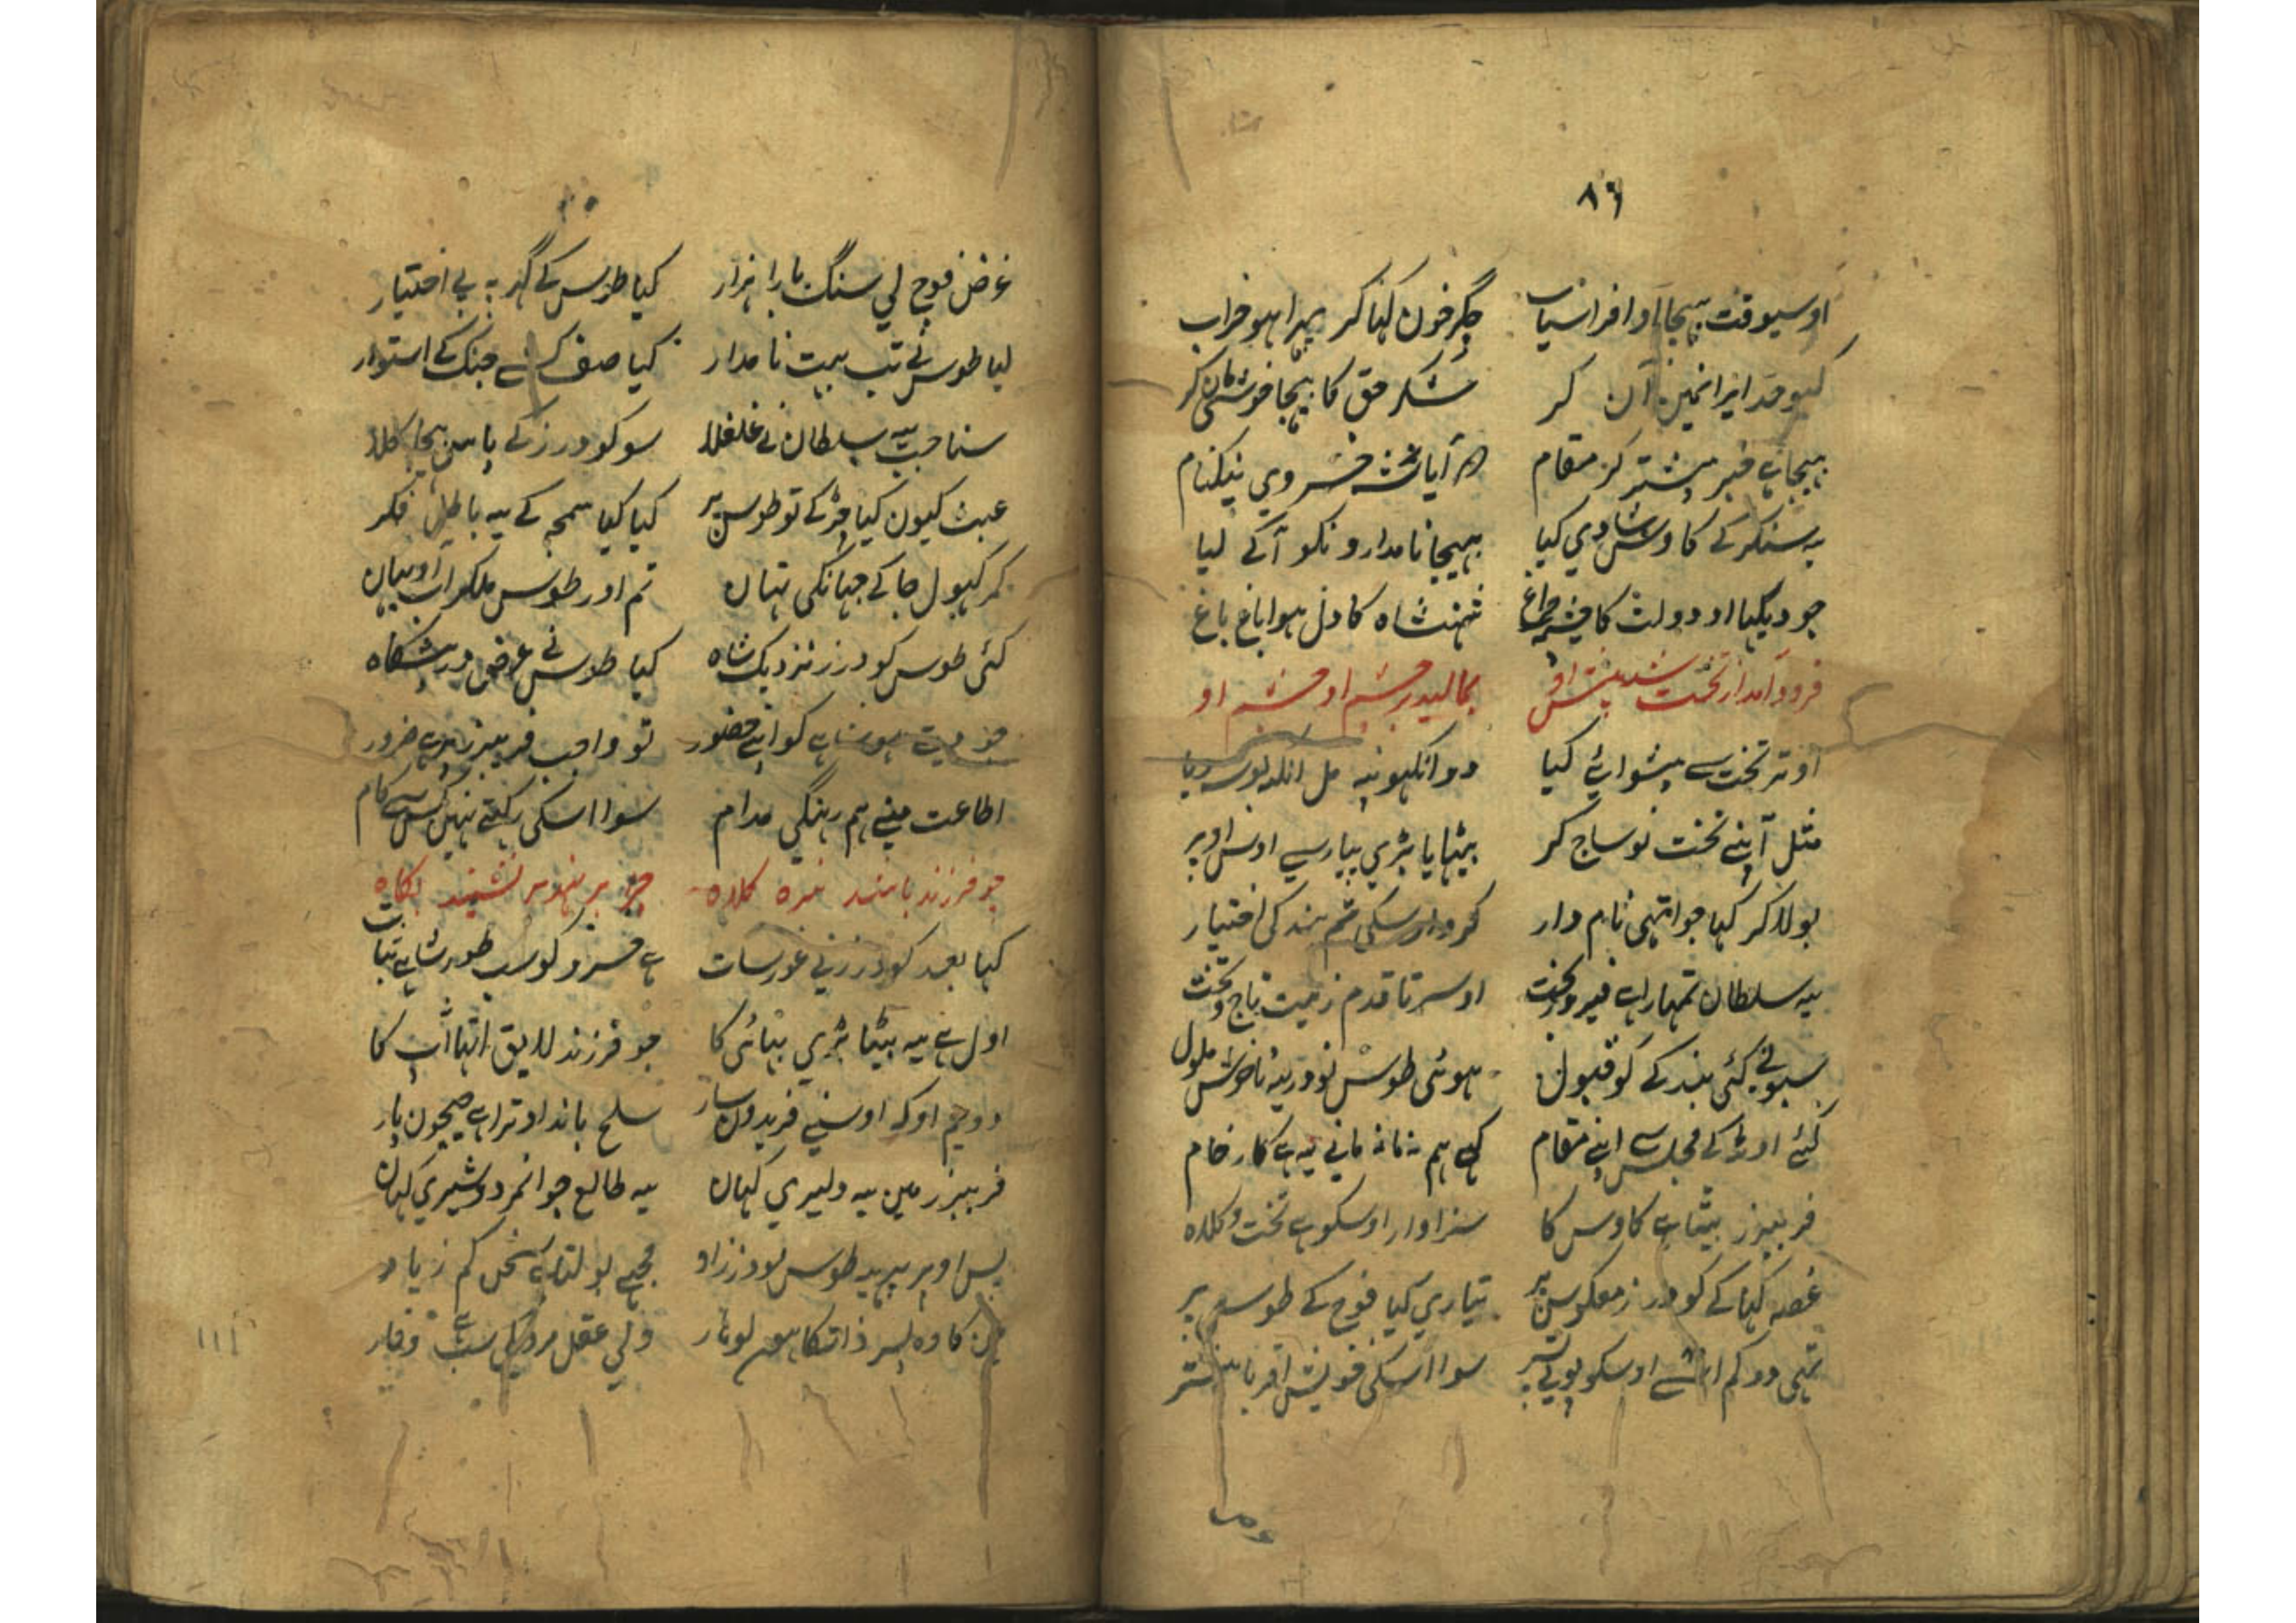 ٨٦
اوسیوقت بهیجا او افراسیاب جگر خون کها کر پهرا هو خراب
کیو قد ایرانمین آن کر شکر حق کا بهیجا خوشی مان کر
بهیجا خبر پیشتر کر مقام آیا خسروی نیکنام
یه سنکر کے کاوس شادی کیا بهیجا نامدارونکو آکے لیا
جو دیکها او دولت کا چشم چراغ شهنشاه کا دل هوا باغ باغ
فرود آمد از تخت شد پیش او بمالید بر چشم او چشم او
اوتر تخت سے پیشوائے کیا دو انکهونپه مل انکهه بوسه دیا
مثل آپنے تخت نو ساج کر بیٹهایا بڑی پیار سے اوس اوپر
بولا کر کها جو اتهی نام دار کرو اوسکی تم بندکی اختیار
یه سلطان تمهارا هے فیروز بخت او سر تا قدم زیب تاج و تخت
سبونے کئی بندکے کو قبول هوئی طوس نودر یه ناخوش ملول
کئے اوٹ کے مجلس سے اپنے مقام کهے هم نه مانے یه هے کار خام
فریبرز بیٹا هے کاوس کا سزاوار اوسکو هے تخت و کلاه
غصه کها کے کودرز معکوس پر تیاری کیا فوج کے طوس پر
تهی دو کم اوسکو پوتے پسر سوا اسکی خویش اقربا
غرض فوج لی سنگ بارا هزار کیا طوس کے گهر په بے اختیار
لیا طوس نے تب بهت نامدار کیا صف جنک کے استوار
سنا جب یه سلطان نے غلغلا سو کودرز کے پاس بهیجا کلا
عبث کیون کیا چڑ کے تو طوس پر کیا کیا سمجه کے یه باطل فکر
کمر کهول جا کے جهانکی تهان تم اور طوس ملکر اب آو یهان
کئی طوس کودرز نزدیک شاه کیا طوس نے عرض در پیشگاه
کو اپنے حضور تو واجب فریبرز هے ضرور
اطاعت مینے هم رهنگی مدام سوا اسکی رکهتے نهین کس سے کام
چو فرزند باشد نبیره کلاه چرا بر نهد بر نشیند بگاه
کها بعد کودرز نے غور سات هے خسرو کو سب طور شاهے ثبات
اول هے یه بیٹا بڑی بهائی کا جو فرزند لایق اتها آپ کا
دویم اوکه اوسنے فریدون سار سلح باند اوترا هے جیحون پار
فریبرز مین یه دلیری کهان یه طالع جوانمردی شیری کهان
پس اوپر یهه طوس نودر زاد مجهے بولتا هے سخن کم زیاد
کاوه پسر ذاتکا هون لوهار ولی عقل مردکی سب هے وقار